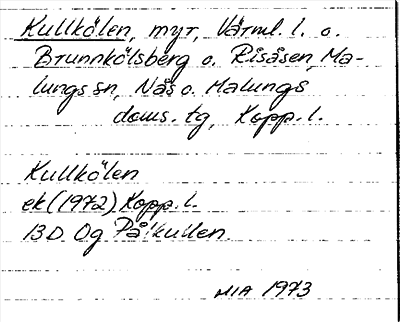 Kullkölen, myr, Värml. l. o.
Brunnkölsberg o. Risåsen, Ma-
lungs sn, Nås o. Malungs
doms. tg, Kopp. l.
Kullkölen
ek (1972) Kopp. l.
13D Og Pålkullen
MIA 1973